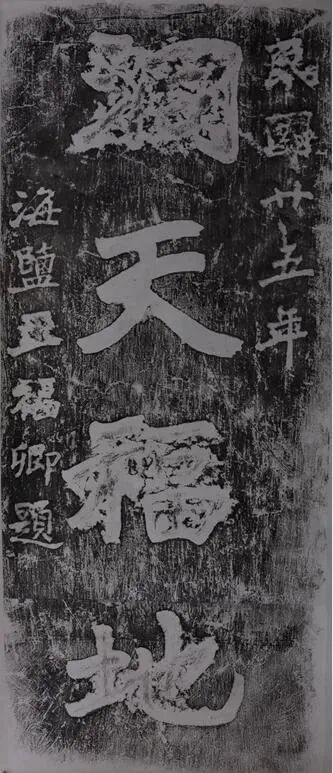 民國廿五年
天福地
海鹽福卿題